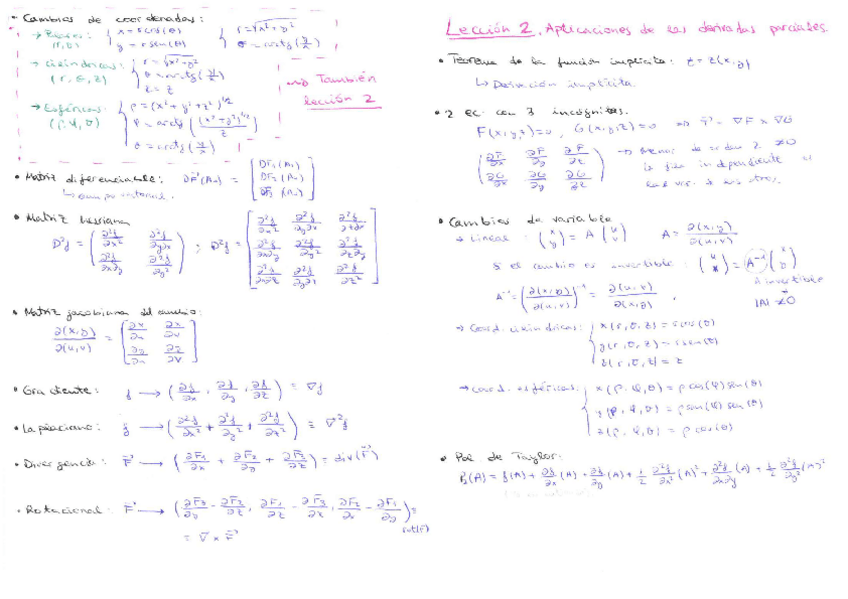 • Cambios de coordenadas:
→ Polares: (r,θ) { x = r cos(θ) y = r sen(θ) { r = √x²+y² θ = arctg(y/x)
→ Cilíndricas: (r, θ, z) { r = √x²+y² θ = arctg(y/x) z = z
→ También lección 2
→ Esféricas: (ρ, φ, θ) { ρ = (x²+y²+z²)^1/2 φ = arctg((x²+y²)^1/2 / z) θ = arctg(y/x)
• Matriz diferenciable: DF(A) = [DF₁(A) DF₂(A) DF₃(A)]
↳ campo vectorial.
• Matriz hessiana
D²f = (∂²f/∂x² ∂²f/∂y∂x ∂²f/∂x∂y ∂²f/∂y²) ; D²f = [∂²f/∂x² ∂²f/∂y∂x ∂²f/∂z∂x ∂²f/∂x∂y ∂²f/∂y² ∂²f/∂z∂y ∂²f/∂x∂z ∂²f/∂y∂z ∂²f/∂z²]
• Matriz jacobiana del cambio:
∂(x,y)/∂(u,v) = [∂x/∂u ∂x/∂v ∂y/∂u ∂y/∂v]
• Gradiente: f → (∂f/∂x, ∂f/∂y, ∂f/∂z) = ∇f
• Laplaciano: f → (∂²f/∂x² + ∂²f/∂y² + ∂²f/∂z²) = ∇²f
• Divergencia: F → (∂F₁/∂x + ∂F₂/∂y + ∂F₃/∂z) = div(F)
• Rotacional: F → (∂F₃/∂y - ∂F₂/∂z, ∂F₁/∂z - ∂F₃/∂x, ∂F₂/∂x - ∂F₁/∂y) = rot(F)
= ∇ x F
Lección 2. Aplicaciones de las derivadas parciales.
• Teorema de la función implícita: z = z(x,y)
↳ Derivación implícita.
• 2 ec. con 3 incógnitas.
F(x,y,z)=0, G(x,y,z)=0 ⇒ T = ∇F x ∇G
(∂F/∂x ∂F/∂y ∂F/∂z ∂G/∂x ∂G/∂y ∂G/∂z) → Menor de orden 2 ≠0
la fila independiente
los otros.
• Cambios de variable
→ Lineal: (x y) = A (u v) A = ∂(x,y)/∂(u,v)
Si el cambio es invertible: = A⁻¹
A⁻¹ = (∂(x,y)/∂(u,v))⁻¹ = ∂(u,v)/∂(x,y).
A invertible
|A| ≠0
→ Coord. cilíndricas: { x(r,θ,z) = r cos(θ)
y(r,θ,z) = r sen(θ)
z(r,θ,z) = z
→ Coord. esféricas: { x(ρ,φ,θ) = ρ cos(φ) sen(θ)
y(ρ,φ,θ) = ρ sen(φ) sen(θ)
z(ρ,φ,θ) = ρ cos(θ)
• Pol de Taylor:
P₂(A) = f(A) + ∂f/∂x (A) + ∂f/∂y (A) + 1/2 ∂²f/∂x² (A)² + ∂²f/∂x∂y (A) + 1/2 ∂²f/∂y² (A)²